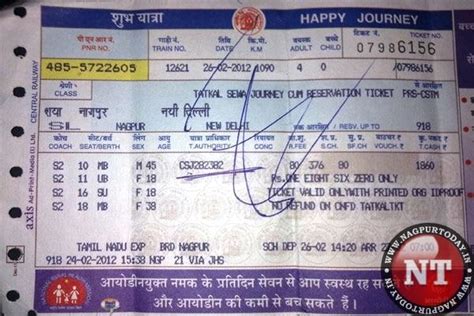 शुभ यात्रा HAPPY JOURNEY
पी.एन.आर.नं. गाड़ी नं. तारीख कि.मी. वयस्क बच्चे टिकट नं.
PNR NO. TRAIN NO. DATE K.M. ADULT CHILD TICKET NO.
07986156
485-5722605 12621 26-02-2012 1090 4 0 /07986156
श्रेणी
CLASS TATKAL SEWA JOURNEY CUM RESERVATION TICKET PRS-CSTM
शया नागपुर नयी दिल्ली
SL NAGPUR NEW DELHI RESV. UP TO 918
कोच
COACH SEX AGE T.AUTHORITY R.FEE S.CH. SF.CH VOUCHER T.CASH
S2 10 MB M 45 CSJ282382 80 376 80 1860
S2 11 UB F 38 Rs.ONE EIGHT SIX ZERO ONLY
S2 16 SU F 18 TICKET VALID ONLYWITH PRINTED ORG IDPROOF
S2 10 MB F 18 NO REFUND ON CNFD TATKALTKT
TAMIL NADU EXP BRD NAGPUR SCH DEP 26-02 14:20 ARR 27 07:00
918 24-02-2012 15:38 NGP 21 VIA JHS
आयोडीनयुक्त नमक के प्रतिदिन सेवन से आप स्वस्थ रह
और आयोडीन की कमी से बच सकते हैं।
CENTRAL RAILWAY
NT
WWW.NAGPURTODAY.IN